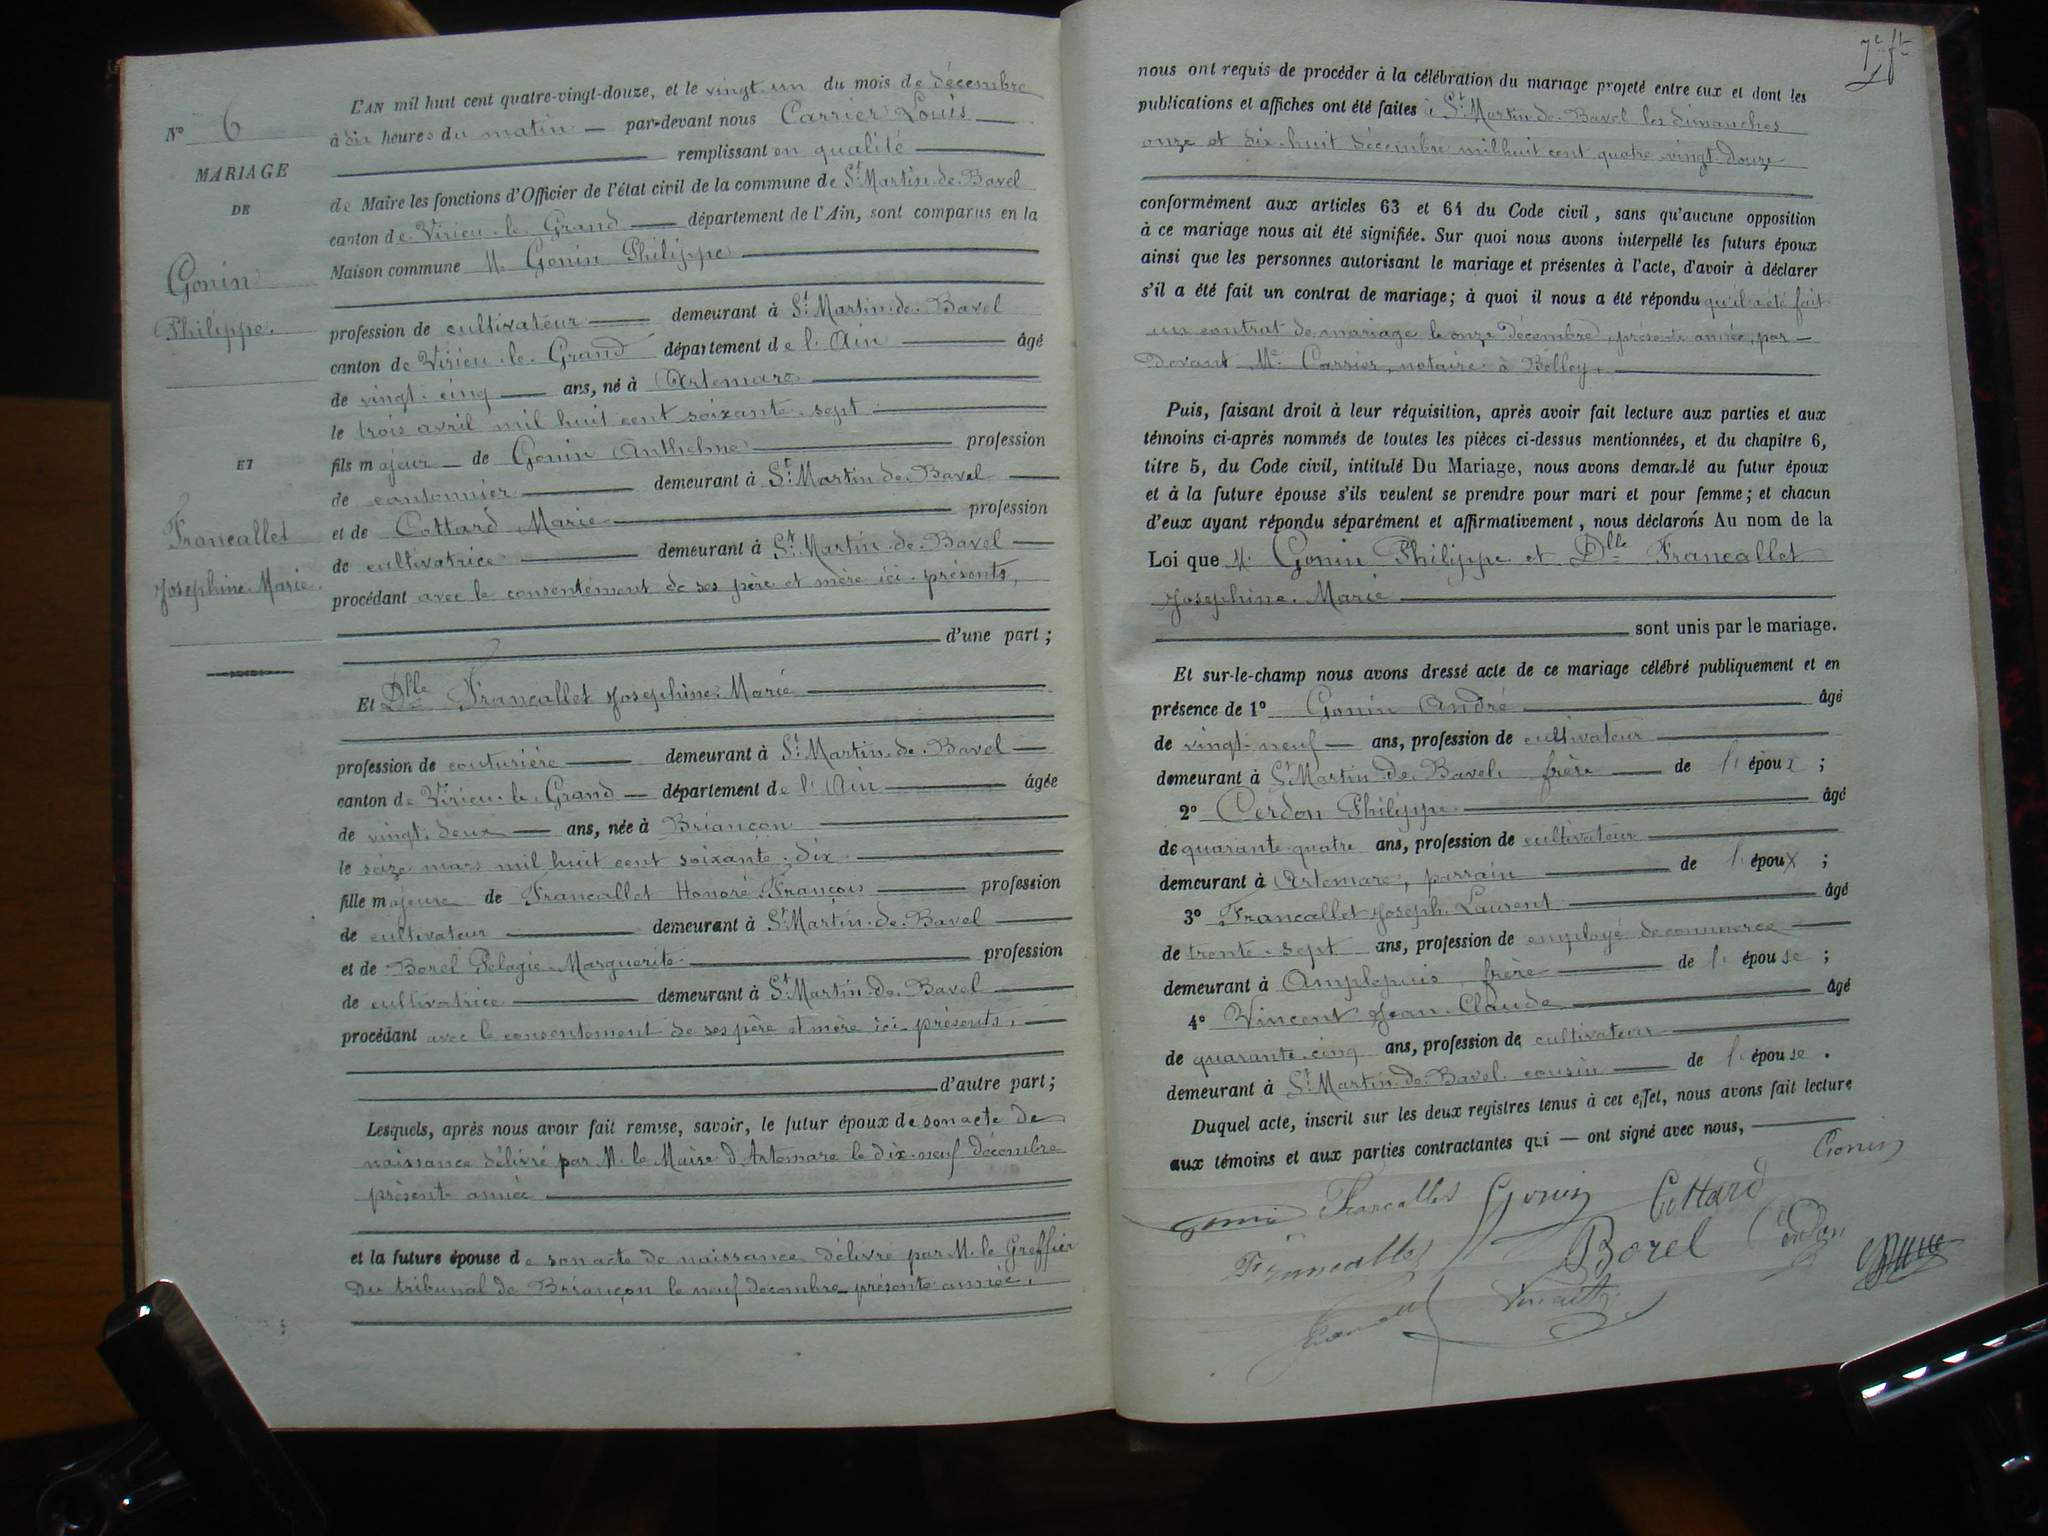 N° 6
MARIAGE
DE
Gonin
Philippe.
ET
Francallet
Josephine Marie
L'AN mil huit cent quatre-vingt-douze, et le vingt-un du mois de décembre
à dix heures du matin par-devant nous Carrier Louis
remplissant en qualité
de Maire les fonctions d'Officier de l'état civil de la commune de St Martin-de-Bavel
canton de Virieu-le-Grand département de l'Ain, sont comparus en la
Maison commune M. Gonin Philippe
profession de cultivateur demeurant à St Martin-de-Bavel
canton de Virieu-le-Grand département de l'Ain âgé
de vingt-cinq ans, né à Artemare
le trois avril mil huit cent soixante-sept
fils majeur de Gonin Anthelme profession
de cantonnier demeurant à St Martin-de-Bavel
et de Cottard Marie profession
de cultivatrice demeurant à St Martin-de-Bavel
procédant avec le consentement de ses père et mère ici-présents,
d'une part ;
Et Dlle Francallet Josephine Marie
profession de couturière demeurant à St Martin-de-Bavel
canton de Virieu-le-Grand département de l'Ain âgée
de vingt-deux ans, née à Briançon
le seize mars mil huit cent soixante-dix
fille majeure de Francallet Honoré François profession
de cultivateur demeurant à St Martin-de-Bavel
et de Borel Pelagie Marguerite profession
de cultivatrice demeurant à St Martin-de-Bavel
procédant avec le consentement de ses père et mère ici-présents,
d'autre part ;
Lesquels, après nous avoir fait remise, savoir, le futur époux de son acte de
naissance délivré par M. le Maire d'Artemare le dix-neuf décembre
présente année
et la future épouse de son acte de naissance délivré par M. le Greffier
du tribunal de Briançon le neuf décembre présente année,
;
7e ft
nous ont requis de procéder à la célébration du mariage projeté entre eux et dont les
publications et affiches ont été faites à St Martin-de-Bavel les dimanches
onze et dix-huit décembre mil huit cent quatre-vingt-douze
conformément aux articles 63 et 64 du Code civil, sans qu'aucune opposition
à ce mariage nous ait été signifiée. Sur quoi nous avons interpellé les futurs époux
ainsi que les personnes autorisant le mariage et présentes à l'acte, d'avoir à déclarer
s'il a été fait un contrat de mariage ; à quoi il nous a été répondu qu'il a été fait
un contrat de mariage le onze décembre, présente année, par-
devant Me Carrier, notaire à Belley.
Puis, faisant droit à leur réquisition, après avoir fait lecture aux parties et aux
témoins ci-après nommés de toutes les pièces ci-dessus mentionnées, et du chapitre 6,
titre 5, du Code civil, intitulé Du Mariage, nous avons demandé au futur époux
et à la future épouse s'ils veulent se prendre pour mari et pour femme ; et chacun
d'eux ayant répondu séparément et affirmativement, nous déclarons Au nom de la
Loi que M. Gonin Philippe et Dlle Francallet
Josephine Marie
sont unis par le mariage.
Et sur-le-champ nous avons dressé acte de ce mariage célébré publiquement et en
présence de 1° Gonin André âgé
de vingt-neuf ans, profession de cultivateur
demeurant à St Martin-de-Bavel, frère de l'époux ;
2° Cerdon Philippe âgé
de quarante-quatre ans, profession de cultivateur
demeurant à Artemare, parrain de l'époux ;
3° Francallet Joseph Laurent âgé
de trente-sept ans, profession de employé de commerce
demeurant à Amplepuis, frère de l'épouse ;
4° Vincent Jean-Claude âgé
de quarante-cinq ans, profession de cultivateur
demeurant à St Martin-de-Bavel, cousin de l'épouse .
Duquel acte, inscrit sur les deux registres tenus à cet effet, nous avons fait lecture
aux témoins et aux parties contractantes qui — ont signé avec nous,
Gonin Francallet Gonin Cottard Gonin
Francallet Borel Cerdon
Vincent